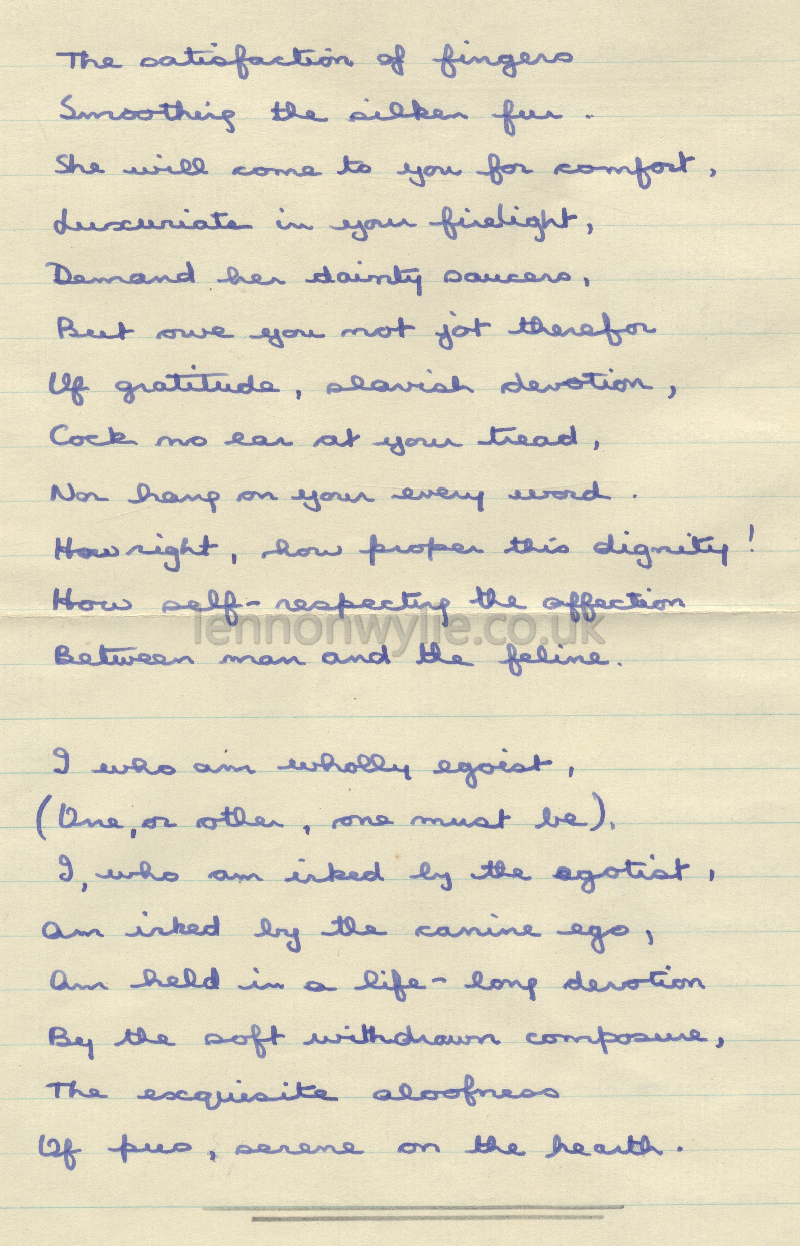 The satisfaction of fingers
Smoothing the silken fur.
She will come to you for comfort,
Luxuriate in your firelight,
Demand her dainty saucers,
But owe you not jot therefor
Of gratitude, slavish devotion,
Cock no ear at your tread,
Nor hang on your every word.
How right, how proper this dignity!
How self-respecting the affection
lennonwylie.co.uk
Between man and the feline.
I who am wholly egoist,
(One, or other, one must be).
I, who am irked by the egotist,
Am irked by the canine ego,
Am held in a life-long devotion
By the soft withdrawn composure,
The exquisite aloofness
Of pus, serene on the hearth.